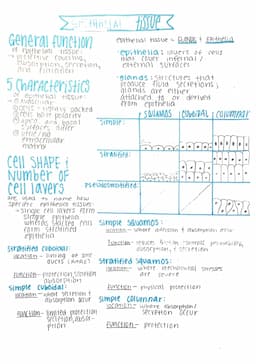 Epithelial Tissue
General Function
of epithelial tissue:
→ protective covering,
absorption, secretion,
and filtration
epithelial tissue = glands & epithelia
·epithelia: layers of cells
that cover internal /
external surfaces
·glands: structures that
produce fluid secretions;
glands are either
attached to or derived
from epithelia
5 Characteristics
of epithelial tissue:
① avascular
② cells tightly packed
③ cells have polarity
④ apical and basal
surfaces differ
⑤ little
extracellular
matrix
SQUAMOUS CUBOIDAL COLUMNAR
SIMPLE:
STRATIFIED:
PSEUDOSTRATIFIED:
Cell Shape &
Number of
Cell Layers
are used to name how
specific epithelial tissues
→ single cell layers form
simple epithelia
whereas stacked cells
form stratified
epithelia
Simple Squamos:
location - where diffusion & absorption occur
Function -
absorption, & secretion
Stratified Cuboidal:
location - lining of
ducts
Function - protection, secretion
absorption
Stratified Squamos:
location - where mechanical stresses
are severe
Function - physical protection
Simple Cuboidal:
location - where secretion &
absorption occur
Function - limited protection
secretion, absor-
ption
Simple Columnar:
location - where absorption/
secretion occur
Function - protection